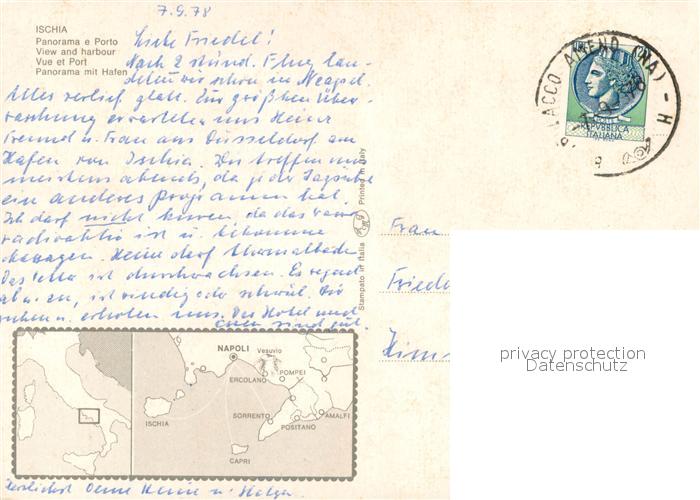 7.9.78
ISCHIA
Panorama e Porto
View and harbour
Vue et Port
Panorama mit Hafen
Liebe Friedel!
Nach 2 stünd. Flug lan-
deten wir schon in Neapel.
Alles verlief glatt. Zur größten Über-
raschung erwarteten uns Heinz
Freund u. Frau aus Düsseldorf am
Hafen von Ischia. Wir treffen uns
meistens abends, da jeder tagsüber
ein anderes Programm hat.
Ich darf nicht kuren, da das
radioaktiv ist u. ich
. Heinz darf Thermalbäder
Das Wetter ist durchwachsen. Es regnet
ab u. zu, ist windig oder schwül. Wir
u. erholen uns. Das Hotel und
Essen sind gut.
Herzlichst Deine Henni u. Helga
Stampato in Italia
Printed in Italy
LACCO AMENO (NA) - H
REPVBBLICA
ITALIANA
Frau
Friede
Him
NAPOLI
Vesuvio
ERCOLANO
POMPEI
ISCHIA
SORRENTO
POSITANO
AMALFI
CAPRI
privacy protection
Datenschutz